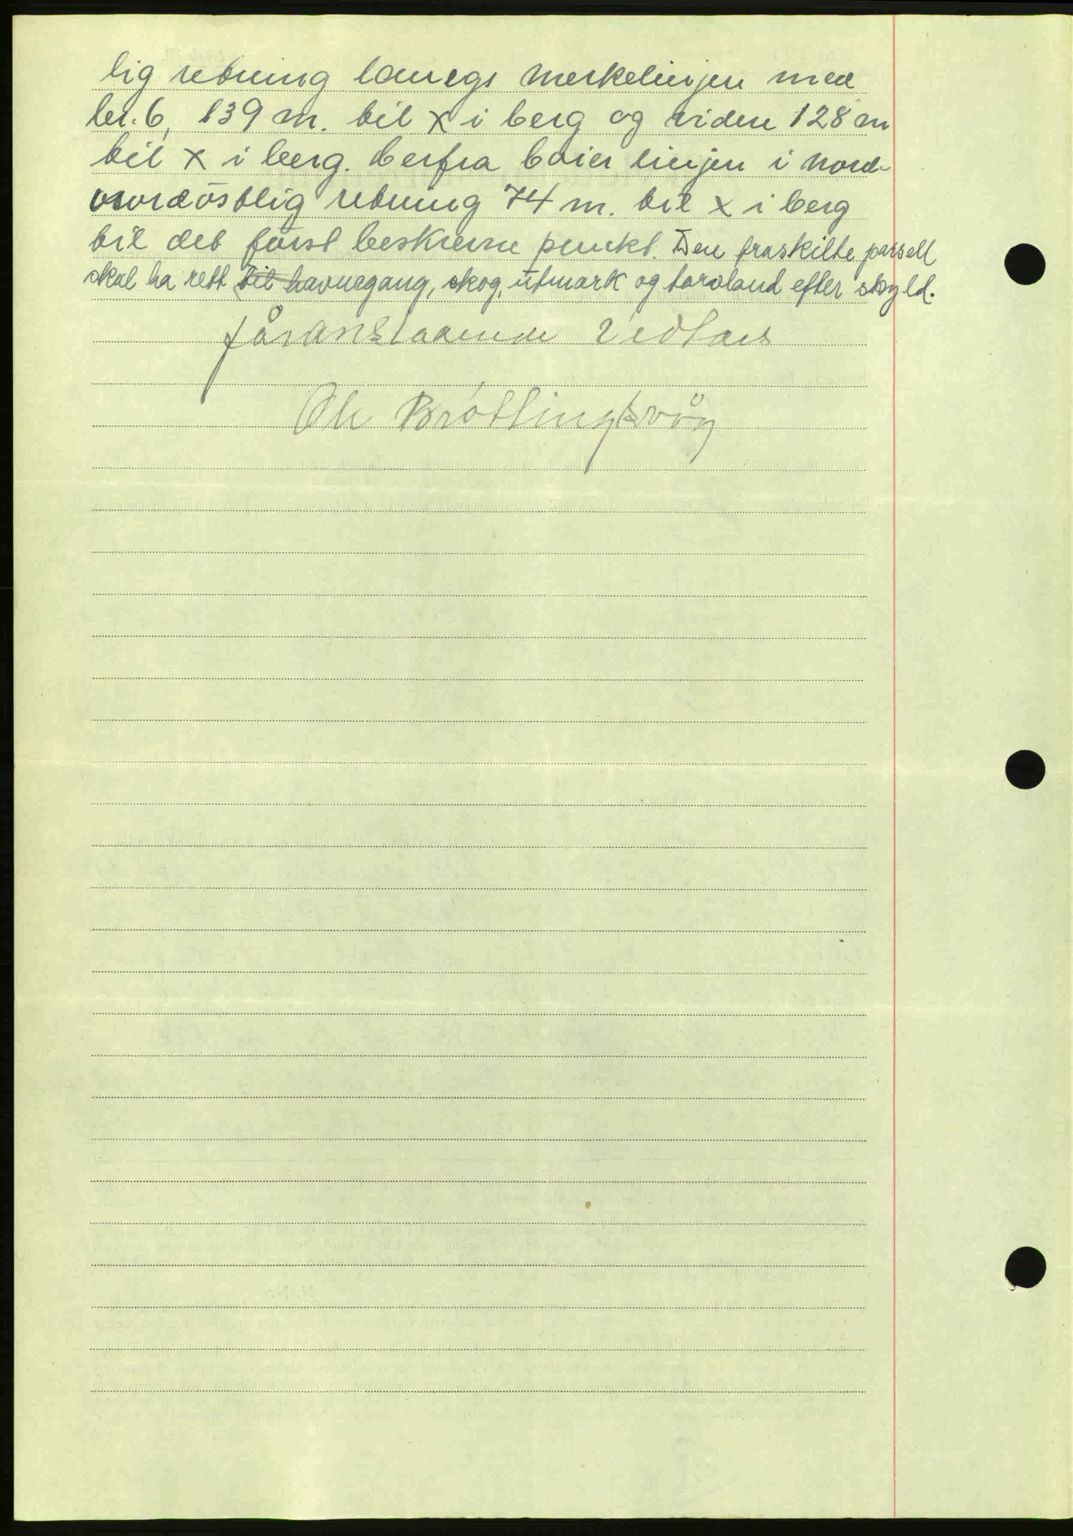 lig retning langs merkelinjen med
br. 6, 139 m. til x i berg og videre 128 m
til x i berg. Derfra böier linjen i nord-
nordöstlig retning 74 m. til x i berg
til det först beskrevne punkt. Den fraskilte parsell
skal ha rett til havnegang, skog, utmark og torvland efter skyld.
föranstaaende vedtaes
Ole Bröttingsvåg